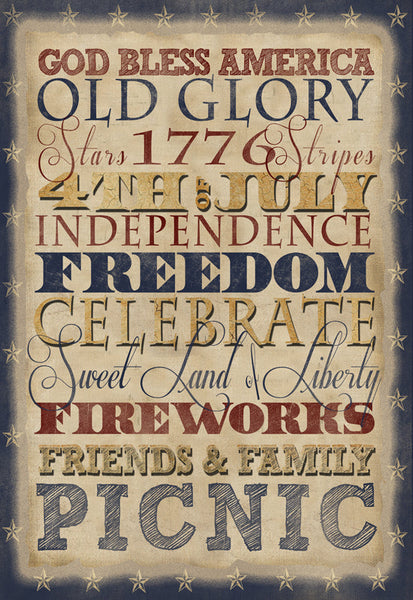 GOD BLESS AMERICA
OLD GLORY
Stars 1776 Stripes
4TH OF JULY
INDEPENDENCE
FREEDOM
CELEBRATE
Sweet Land of Liberty
FIREWORKS
FRIENDS & FAMILY
PICNIC